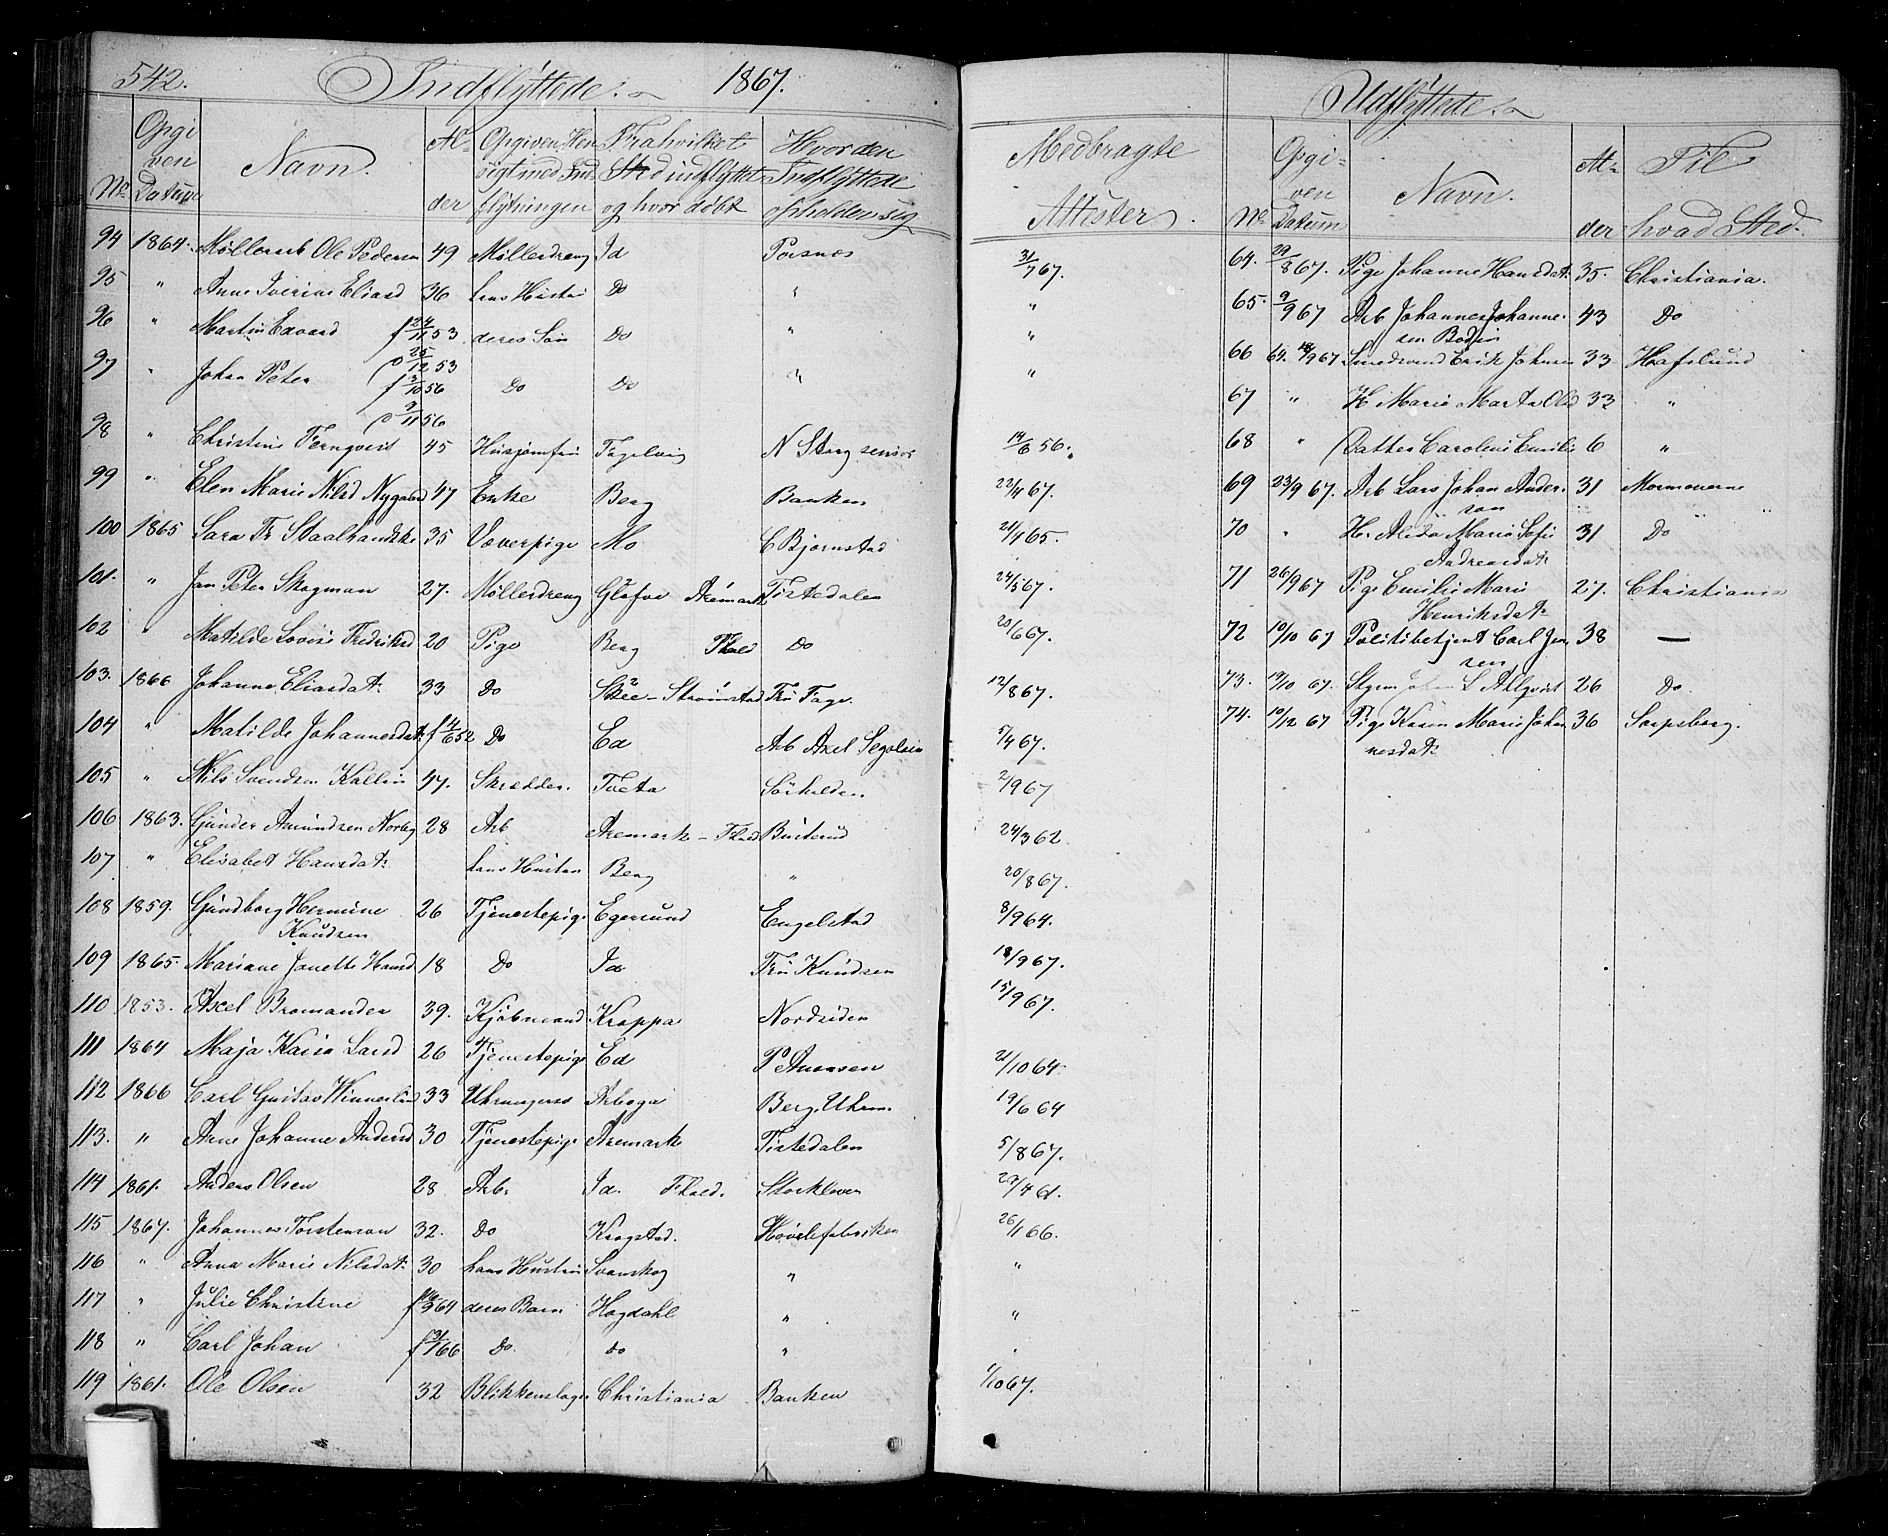 542. Indflyttede. 1867.
No Opgiven Datum Navn. Alder Opgiven Hensigt med Indflytningen Fra hvilket Sted indflyttet og hvor døbt Hvor den Indflyttede opholder sig Medbragte Attester.
94 1864. Møllerarb Ole Pedersen 49 Møllerdreng Id Porsnes 31/7 67.
95 " Anne Iverine Eliasd 36 hans Hustru Do " "
96 " Martin Edvard f 24/11 53 deres Søn Do " "
ↄ 25/12 53
97 " Johan Peter f 3/10 56 Do Do " "
ↄ 9/11 56
98 " Christine Fernqvist 45 Husjomfru Fogelvig N Stang 14/6 56.
99 " Elen Marie Nilsd Nygaard 47 Enke Berg Banken 22/4 67.
100 1865 Sara Fr Staalhandske 35 Væverpige Mo C Bjørnstad 21/4 65.
101. " Jan Peter Skogman 27. Møllerdreng Glafva Aremark Tistedalen 24/5 67.
102 " Matilde Lovise Fredriksd 20 Pige Berg Fhald Do 20/6 67.
103. 1866 Johanne Eliasdat: 33 Do Skee - Strømstad Fru Fage. 12/8 67.
104 " Matilde Johannesdat: f 4/6 52 Do Ed Arb Axel Segolsin 5/4 67.
105 " Nils Svendsen Kallin 47. Skrædder. Tveta Sørhalden 2/9 67
106 1863. Gunder Amundsen Norby 28 Arb Aremark - Fhald Busterud 24/3 62.
107 " Elisabet Hansdat: hans Hustru Berg " 20/8 67.
108 1859. Gundborg Hermine 26 Tjenestepige Egersund Engelstad 8/9 64.
Knudsen
109 1865. Mariane Janette Hansd 18 Do Id Fru Knudsen 18/9 67.
110 1853. Axel Bromander 39. Kjøbmand Kroppa Nordsiden 15/9 67.
111 1864 Maja Kaisa Larsd 26 Tjenestepige Ed P Amonsen 21/10 64
112 1866 Carl Gustav Winnerlund 33 Uhrmagersv Arboga Berg, Uhrm. 19/6 64
113. " Anne Johanne Andersd 30 Tjenestepige Aremark Tistedalen 5/8 67.
114 1861. Anders Olsen 28 Arb. Id. Fhald. Storkleven 29/4 61.
115 1867. Johannes Torstenson 32. Do Krogstad. Høvlefabriken 26/1 66.
116 " Anna Marie Nilsdat: 30 hans Hustru Svanskog " "
117 " Julie Christine 64 deres Barn Hogdahl " "
118 " Carl Johan 66 Do. do " "
119 1861. Ole Olsen 32 Blikkenslager Christiania Banken 1/10 67.
Udflyttede.
No Opgiven Datum Navn. Alder Til hvad Sted.
64. 29/8 67. Pige Johanne Hansdat: 35. Christiania.
65. 9/9 67 Arb Johannes Johanne- 43 Do
sen Bodin
66 64. 18/9 67. Smedsvend Erik Johnsen 33 Hafslund
67 " H Marie Marta Olsd 33 "
68 " Datter Caroline Emilie 6 "
69 23/9 67. Arb Lars Johan Ander- 31 Mormonerne
son
70 " H. Alida Maria Sofie 31 Do
Andreasdat:
71 26/9 67 Pige Emilie Marie 27. Christiania
Henriksdat:
72 10/10 67 Politibetjent Carl Jen 38 —
sen
73. 19/10 67. Styrm Johan L Ahlqvist 26 Do.
74. 10/12 67 Pige Karen Marie Johan 36 Sarpsborg.
nesdat: